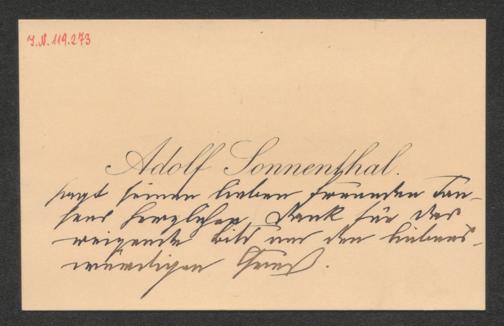 I.N. 119.273
Adolf Sonnenthal.
sagt seinen lieben Freunden Tau-
sens herzlichen Dank für das
bild und den liebens-
würdigen Gruß.